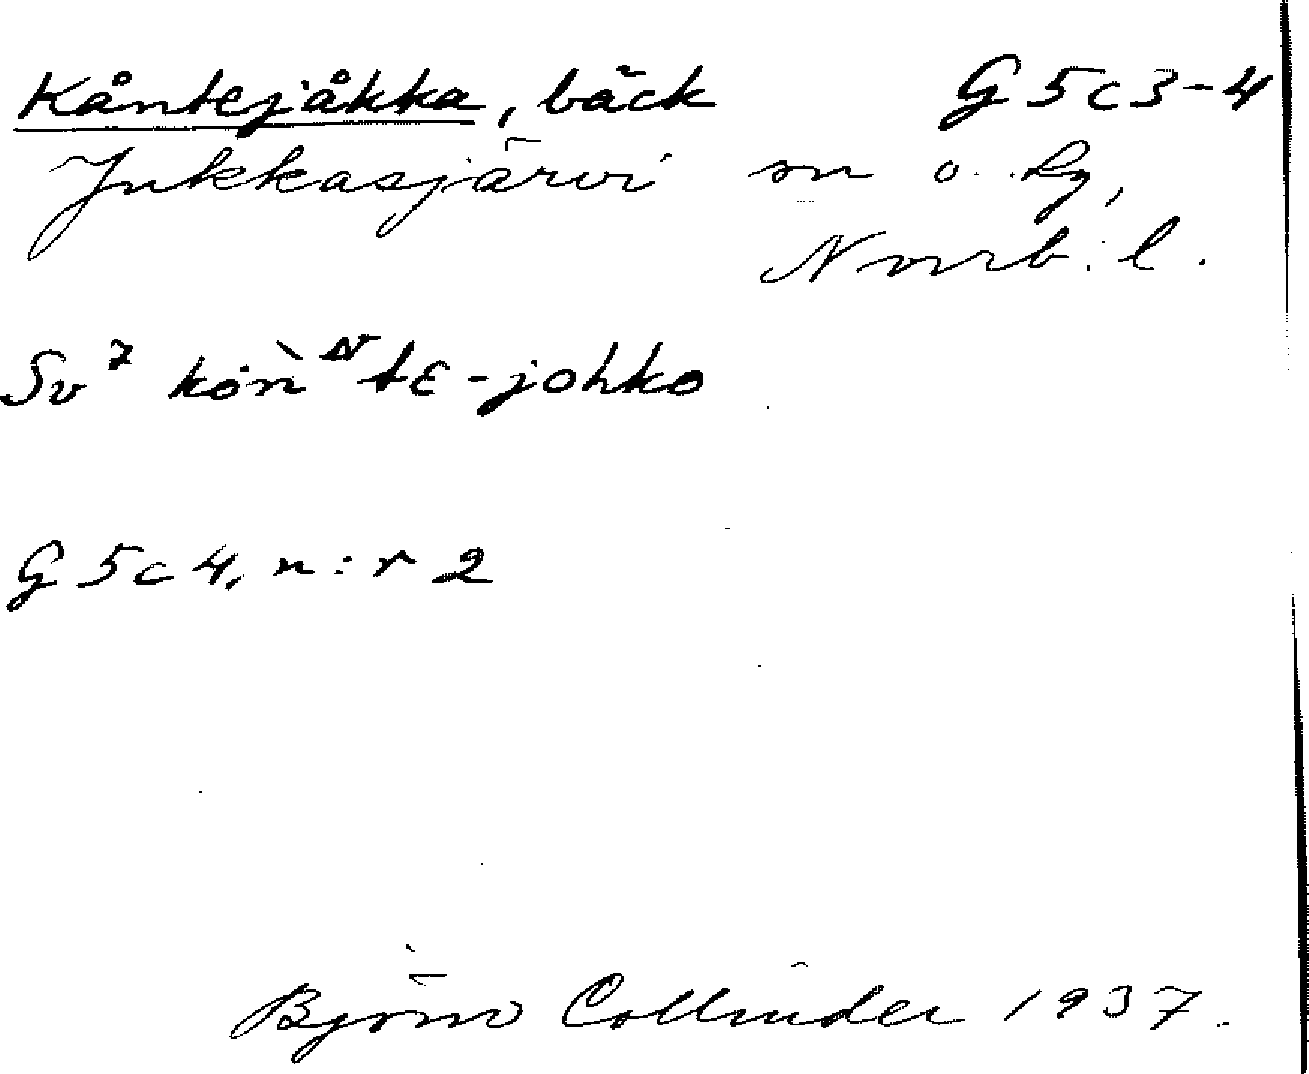 Kåntejåkka, bäck G 5 c 3-4
Jukkasjärvi sn o. hg,
Norrb. l.
Sv 7 kòn tɛ-johko
G 5 c 4, n:r 2
Björn Collinder 1937.